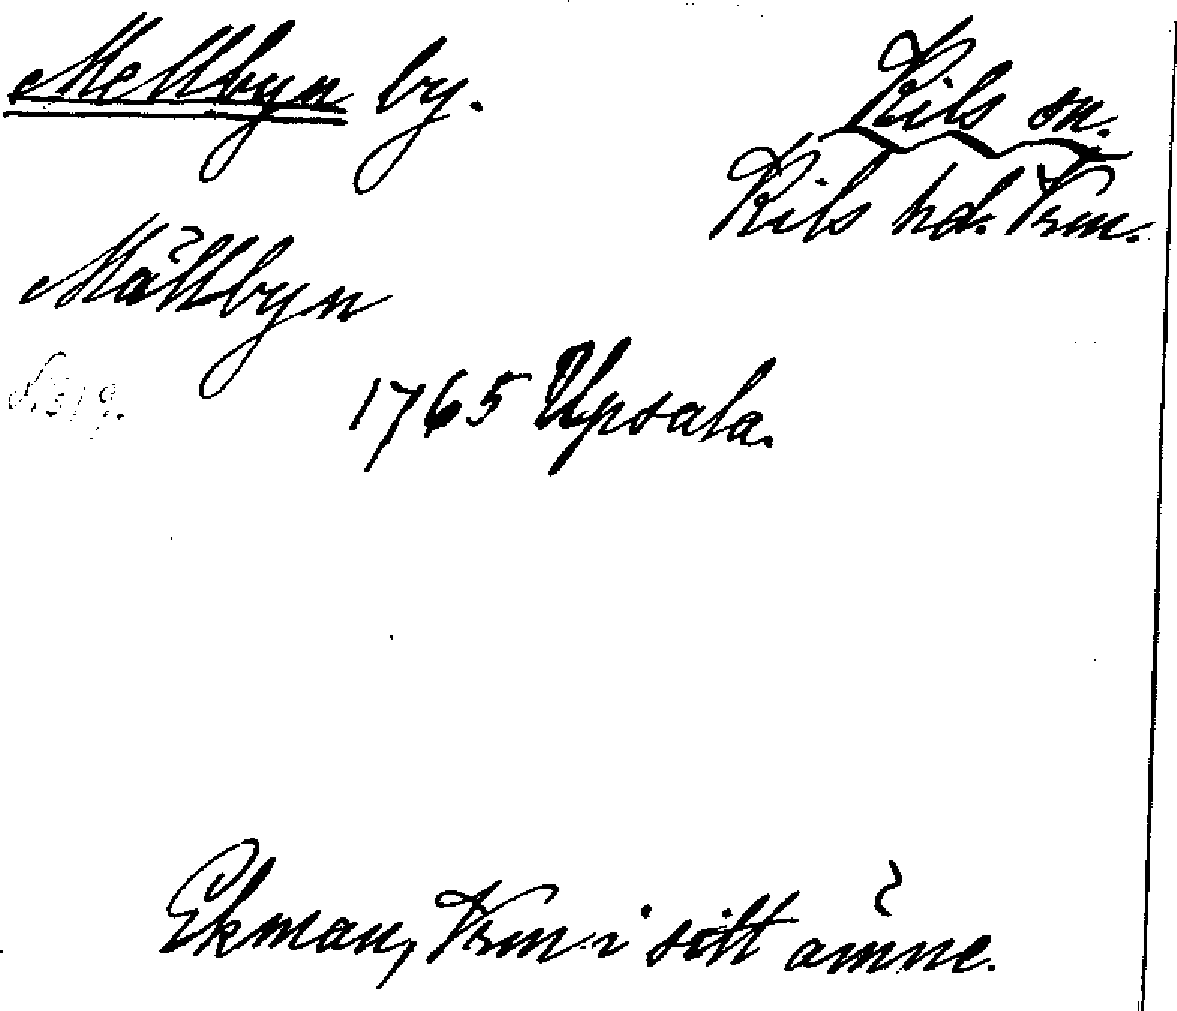 Mellbyn by.
Kils sn.
Kils hd. Vrm.
Mällbyn
S. 319.
1765 Upsala.
Ekman, Vrm i sitt ämne.